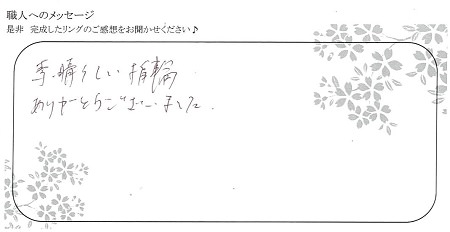 職人へのメッセージ
是非 完成したリングのご感想をお聞かせください♪
素晴らしい指輪
ありがとうございました.